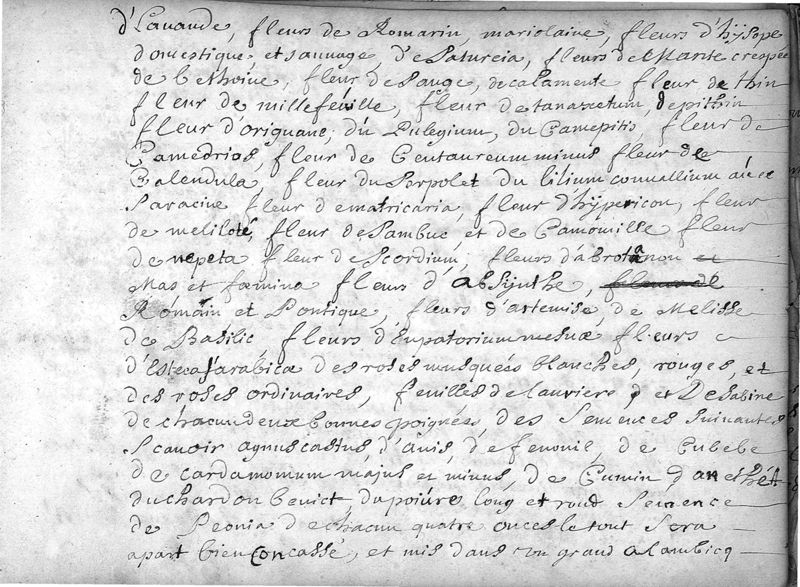 d'Lauande, fleurs de Romarin, mariolaine, fleurs d'hÿsope
domestique, et sauuage, de Satureia, fleurs de Mante crespée
de bethoine, fleur de Sauge, de calamente fleur de thin
fleur de millefeuille, fleur de tanazetum, depithin
fleur d'origuane, du Pulegium, du Camepitis, fleur de
Camedrios, fleur de Centaureum minus fleur de
Calendula, fleur du Serpolet du lilium conuallium
Saracine fleur de matricaria, fleur d'hÿpericon, fleur
de melilote, fleur de Sambuc, et de Camomille fleur
de nepeta fleur de Scordium, fleurs d'abrotanon et
Mas et fœmina fleurs d'absÿnthe, fleurs de
Romain et Pontique, fleurs d'artemise, de Melisse
de Basilic fleurs d'Eupatorium mesuæ flieurs
d'Esteca Sarabica des roses musquées blanches, rouges, et
des roses ordinaires, feuilles de lauriere, et de Sabine
de chacun deux bonnes poignées, des Semences Suiuantes
Scauoir agnus castus, d'anis, de fenouil, de Cubebe
de cardamomum majus et minus, de Cumin d'aneth
du chardon benict du poiure long et rond Semence
de Peonia de chacun quatre onces le tout Sera
apart bien concassé, et mis dans un grand alambicq